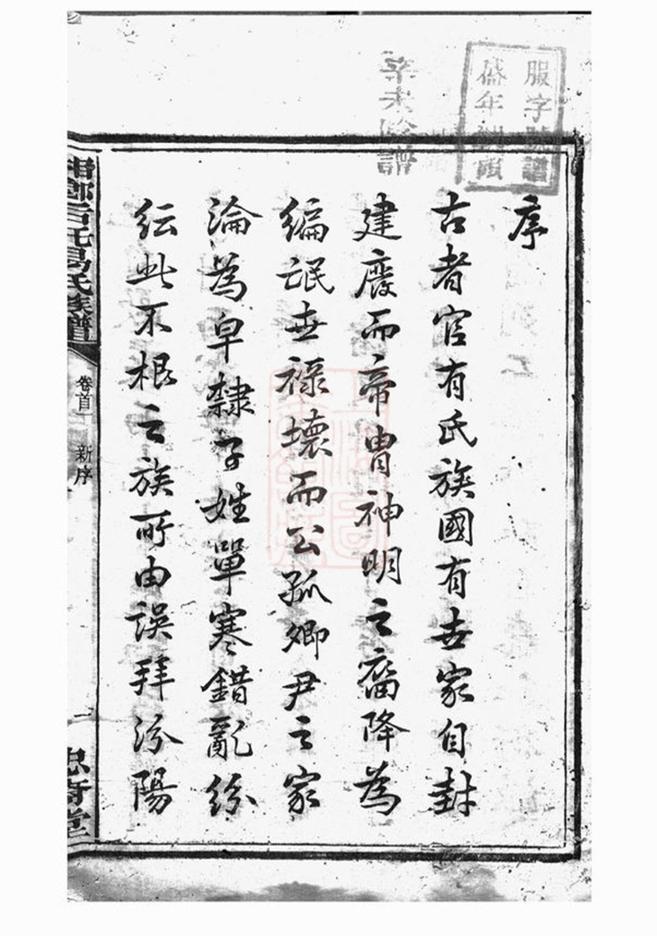 序
古者官有氏族國有世家自封
建廢而帝胄神明之裔降為
編氓世祿壞而公孤卿尹之家
淪為皁隸子姓單寒錯亂紛
紜此不根之族所由誤拜汾陽
服字號譜
盛年
辛未修譜
湘鄉石氏易氏族譜
卷首
新序
一
忠奇堂